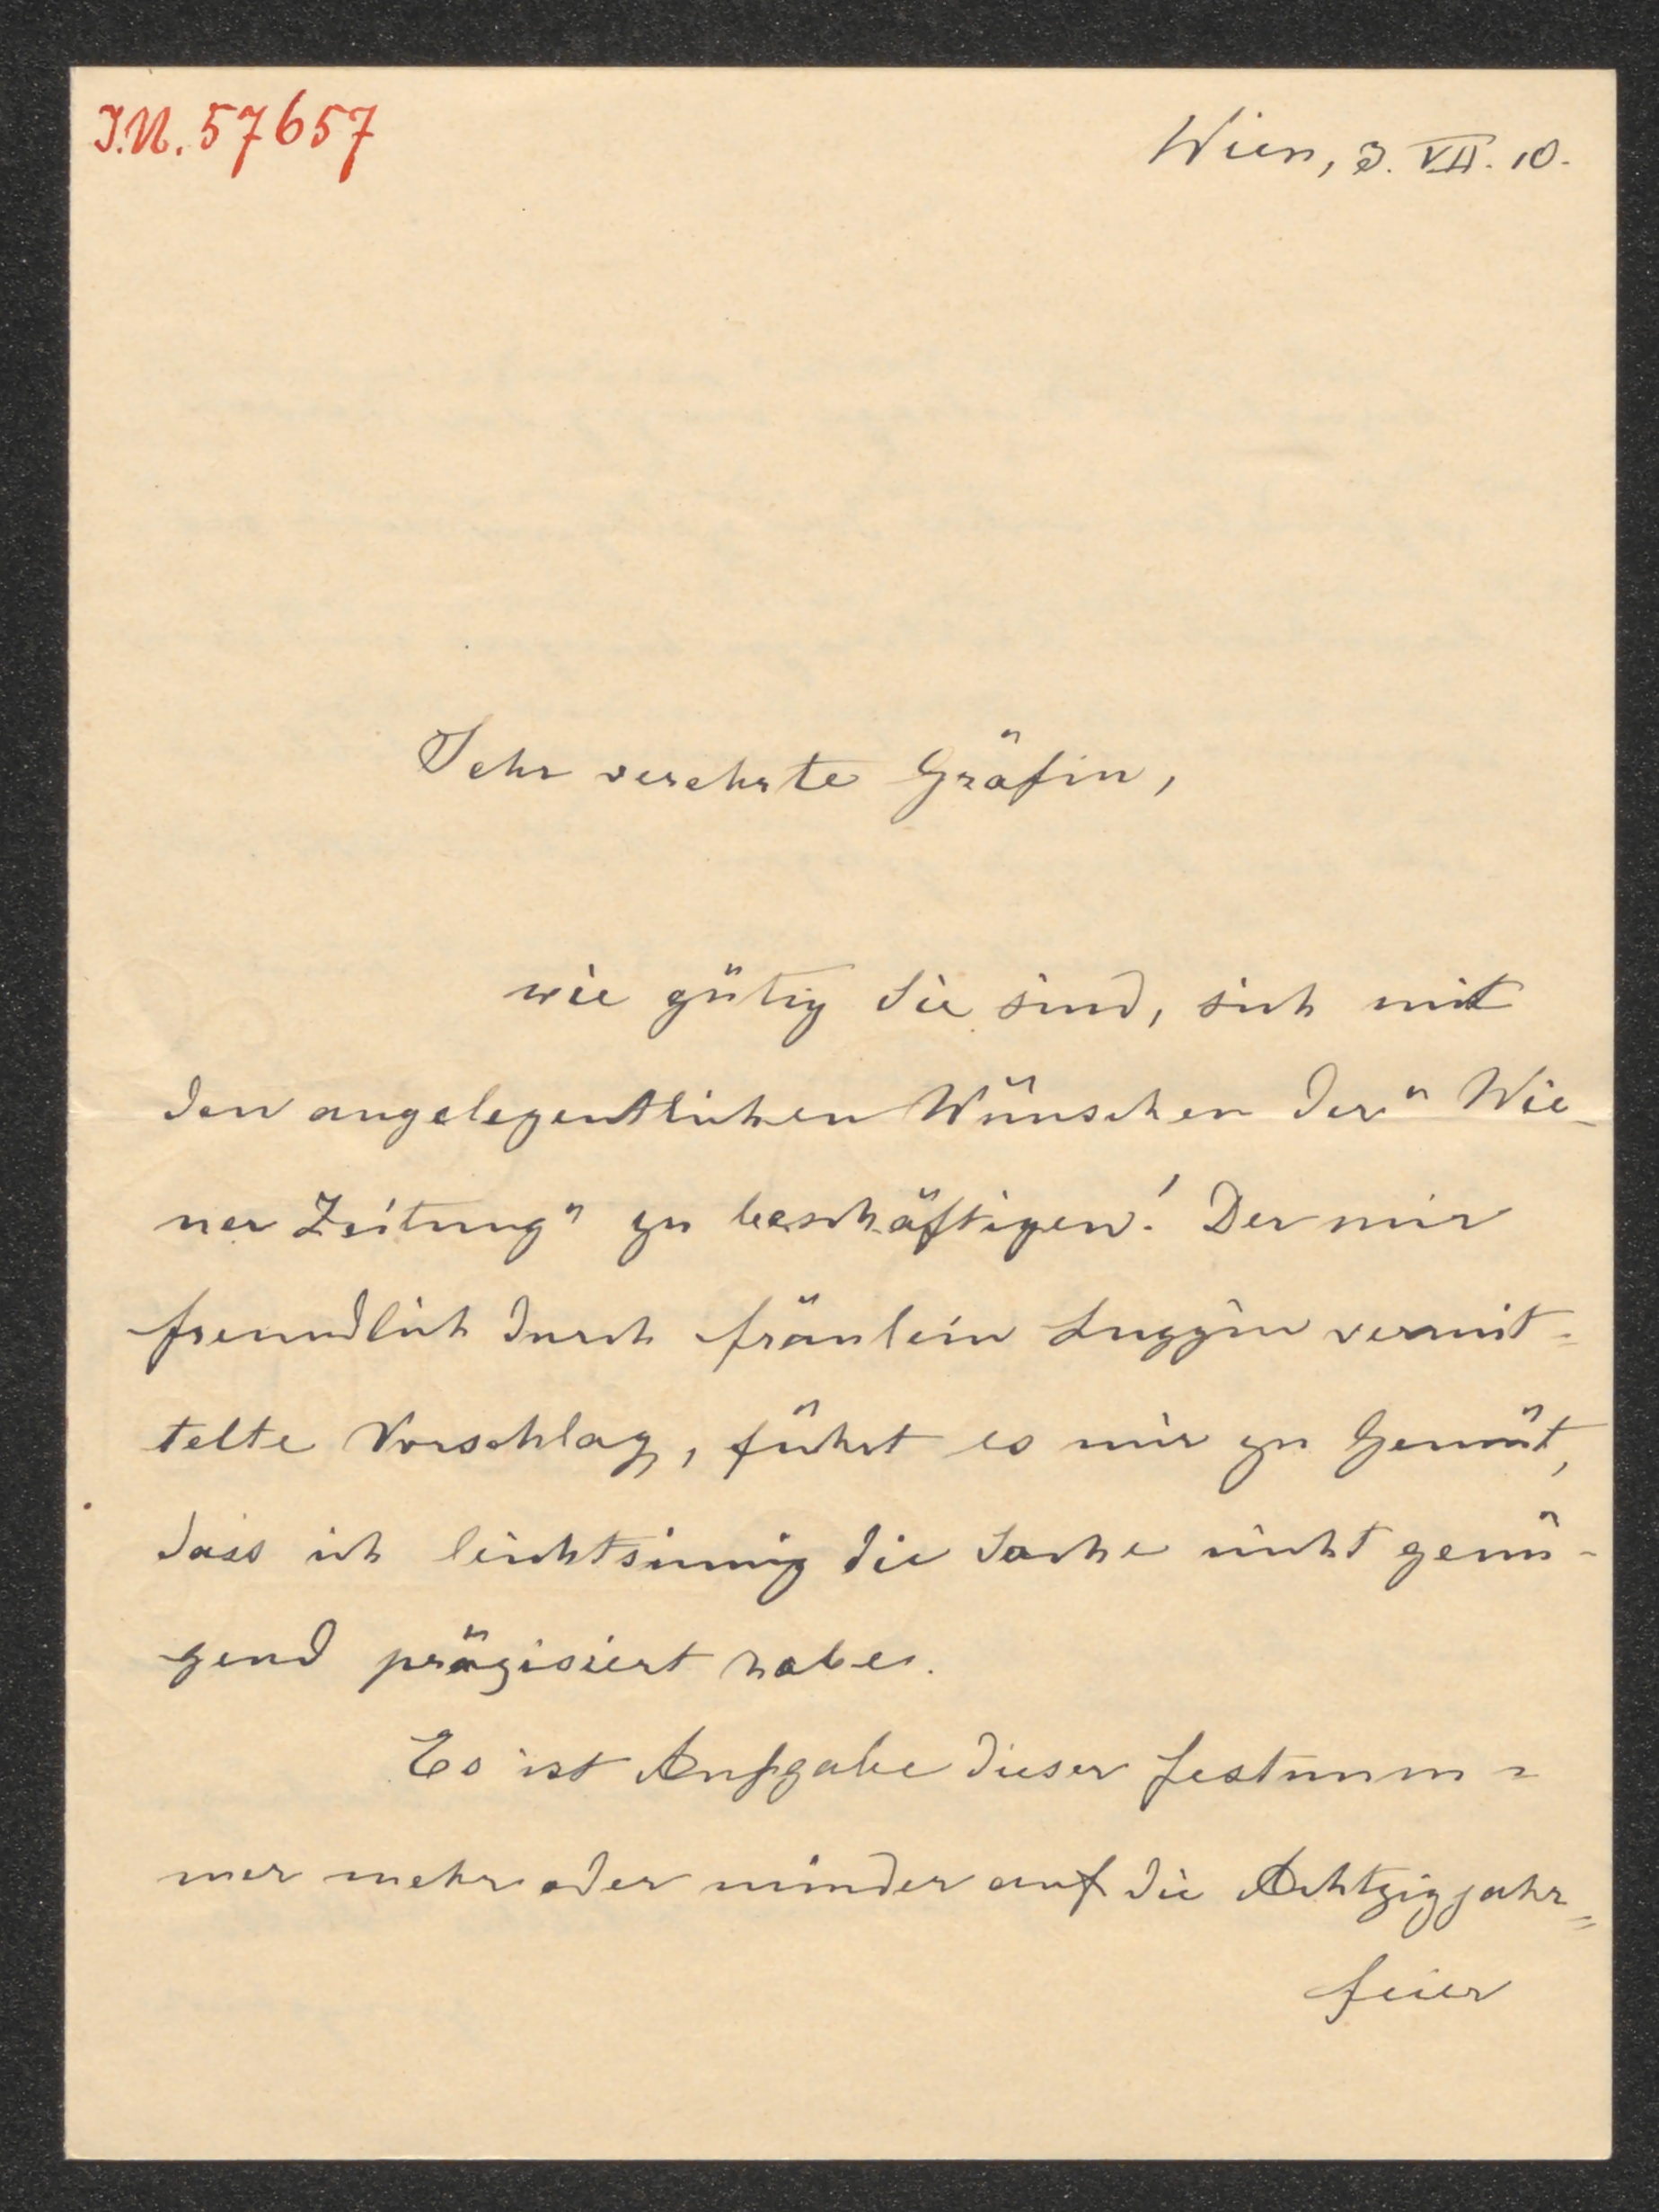 I.N. 57657
Wien, 3. VII. 10.
Sehr verehrte Gräfin,
wie gütig Sie sind, sich mit
den angelegentlichen Wünschen der "Wie-
ner Zeitung" zu beschäftigen! Der mir
freundlich durch Fräulein Luggin vermit-
telte Vorschlag, führt es mir zu Gemüt,
dass ich leichtsinnig die Sache nicht genü-
gend präzisiert habe.
Es ist Aufgabe dieser Festnum=
mer mehr oder minder auf die Achtzigjahr=
feier